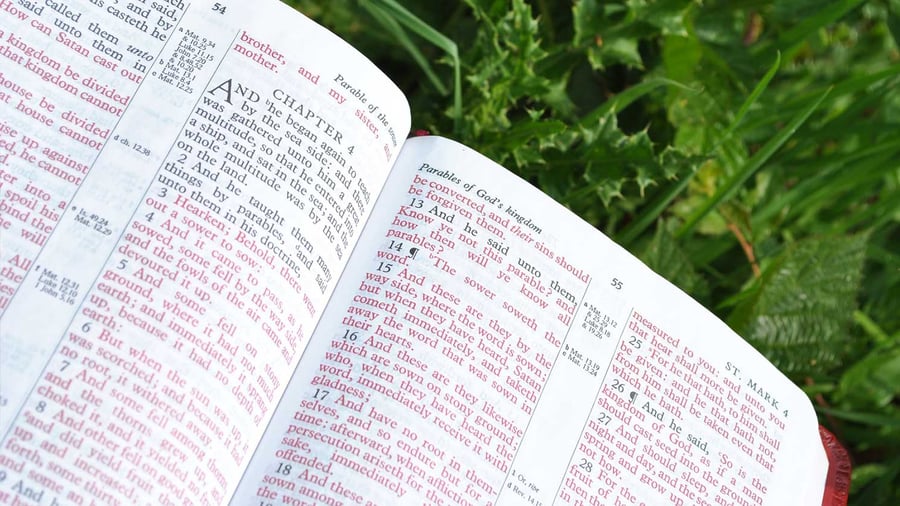 said,
and by
he casteth
called them unto
said unto them in
How can Satan cast out
a kingdom be divided
that kingdom cannot
house be divided
that house cannot
up against
he cannot
54
a Mat. 9.34
d ch. 12.38
e Is. 49.24
Mat. 12.29
f Mat. 12.31
Luke 12.10
1 John 5.16
Parable of the sower
brother, and my sister, and
mother.
CHAPTER 4
AND he began again to teach
by the sea side: and there
was gathered unto him a great
multitude, so that he entered into
a ship, and sat in the sea; and the
whole multitude was by the sea
on the land.
2 And he taught them many
things by parables, and said
unto them in his doctrine,
3 Hearken; Behold, there went
out a sower to sow:
4 And it came to pass, as he
sowed, some fell by the way side,
and the fowls of the air came and
devoured it up.
5 And some fell on stony
ground, where it had not much
earth; and immediately it sprang
up, because it had no depth of
earth:
6 But when the sun was up, it
was scorched; and because it had
no root, it withered away.
7 And some fell among thorns,
and the thorns grew up, and
choked it, and it yielded no fruit.
8 And other fell on good ground,
and did yield fruit that sprang
up and increased; and brought
forth, some thirty,
9 And he
Parables of God's kingdom
be converted, and their sins should
be forgiven them.
13 And he said unto them,
Know ye not this parable? and
how then will ye know all
parables?
14 ¶ The sower soweth the
word.
15 And these are they by the
way side, where the word is sown;
but when they have heard, Satan
cometh immediately, and taketh
away the word that was sown in
their hearts.
16 And these are they likewise
which are sown on stony ground;
who, when they have heard the
word, immediately receive it with
gladness;
17 And have no root in them-
selves, and so endure but for a
time: afterward, when affliction or
persecution ariseth for the word's
sake, immediately they are
offended.
18 And these are they which are
sown among
the word
55
a Mat. 13.12
& 25.29
Luke 8.18
& 19.26
b Mat. 13.19
c Mat. 13.24
1 Or, ripe
d Rev. 14.15
ST. MARK 4
measured to you: and unto you
that hear shall more be given.
25 For he that hath, to him shall
be given: and he that hath not,
from him shall be taken even that
which he hath.
26 ¶ And he said, So is the
kingdom of God, as if a man
should cast seed into the ground;
27 And should sleep, and rise
night and day, and the seed should
spring and grow up, he knoweth
not how.
28 For the earth
fruit of
then the